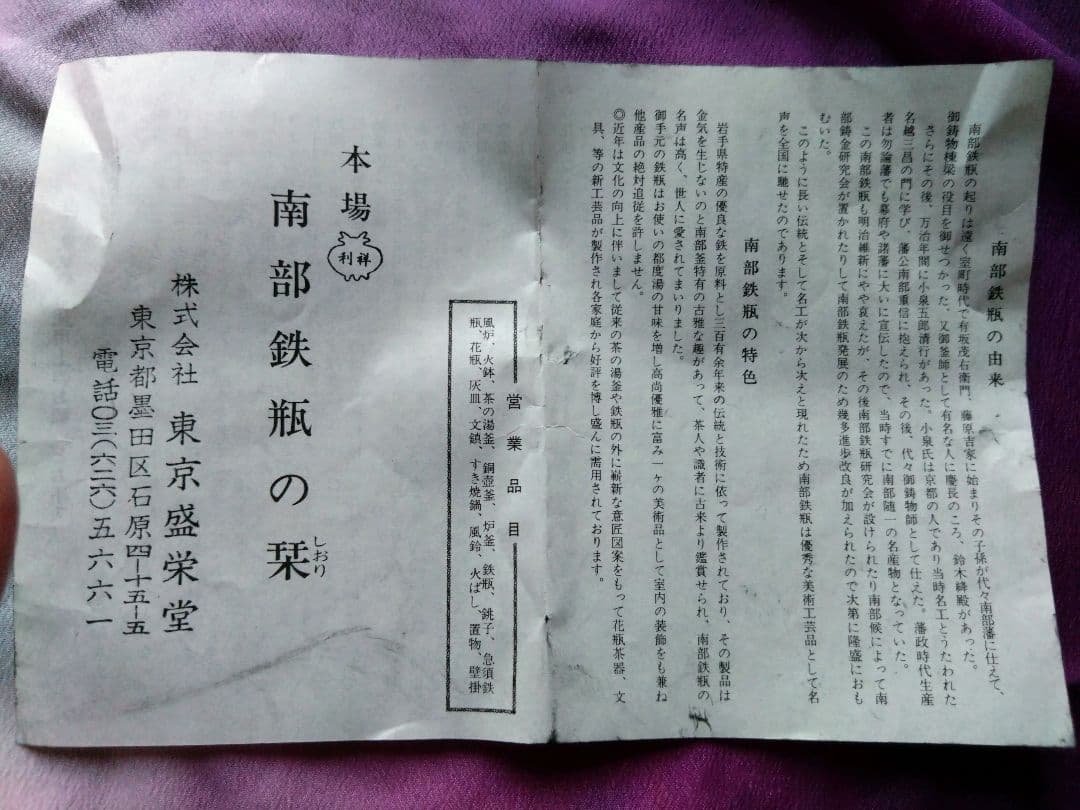 南部鉄瓶の由来
南部鉄瓶の起りは遠く室町時代で有坂茂右衛門、藤原吉家に始まりその子孫が代々南部藩に仕えて、
御鋳物棟梁の役目を御せつかった、又御釜師として有名な人に慶長のころ、鈴木縫殿があった。
さらにその後、万治年間に小泉五郎清行があった。小泉氏は京都の人であり当時名工とうたわれた
名越三昌の門に学び、藩公南部重信に抱えられ、その後、代々御鋳物師として仕えた。藩政時代生産
者は勿論藩でも幕府や諸藩に大いに宣伝したので、当時すでに南部随一の名産物となっていた。
この南部鉄瓶も明治維新にやや衰えたが、その後南部鉄瓶研究会が設けられたり南部候によって南
部鋳金研究会が置かれたりして南部鉄瓶発展のため幾多進歩改良が加えられたので次第に隆盛におも
むいた。
このように長い伝統とそして名工が次から次えと現れたため南部鉄瓶は優秀な美術工芸品として名
声を全国に馳せたのであります。
南部鉄瓶の特色
岩手県特産の優良な鉄を原料とし三百有余年来の伝統と技術に依って製作されており、その製品は
金気を生じないのと南部釜特有の古雅な趣があって、茶人や識者に古来より鑑賞せられ、南部鉄瓶の
名声は高く、世人に愛されてまいりました。
御手元の鉄瓶はお使いの都度湯の甘味を増し高尚優雅に富み一ヶの美術品として室内の装飾をも兼ね
他産品の絶対追従を許しません。
◎近年は文化の向上に伴いまして従来の茶の湯釜や鉄瓶の外に嶄新な意匠図案をもって花瓶茶器、文
具、等の新工芸品が製作され各家庭から好評を博し盛んに需用されております。
営業品目
風炉、火鉢、茶の湯釜、銅壺釜、炉釜、鉄瓶、銚子、急須鉄
瓶、花瓶、灰皿、文鎮、すき焼鍋、風鈴、火ばし、置物、壁掛
本場
祥利
南部鉄瓶の栞
しおり
株式会社 東京盛栄堂
東京都墨田区石原四-十五-五
電話〇三(六二六)五六六一